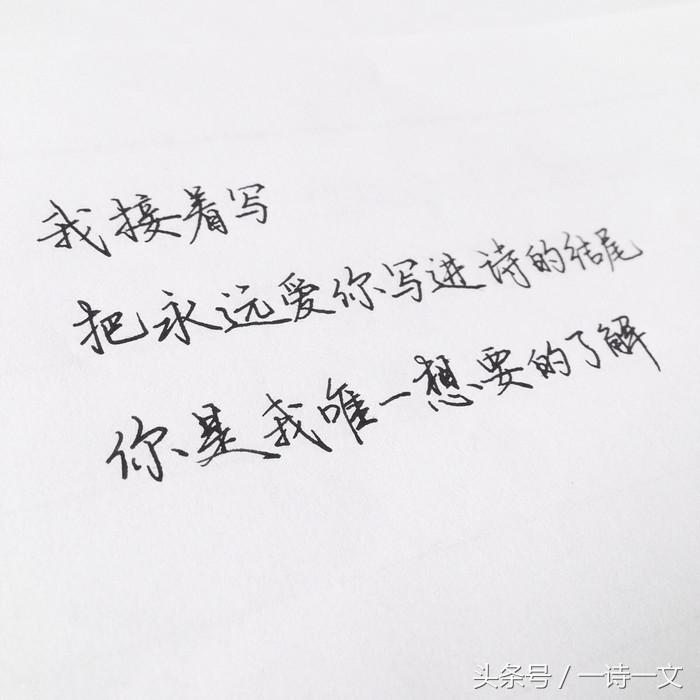 我接着写
把永远爱你写进诗的结尾
你是我唯一想要的了解
头条号 / 一诗一文